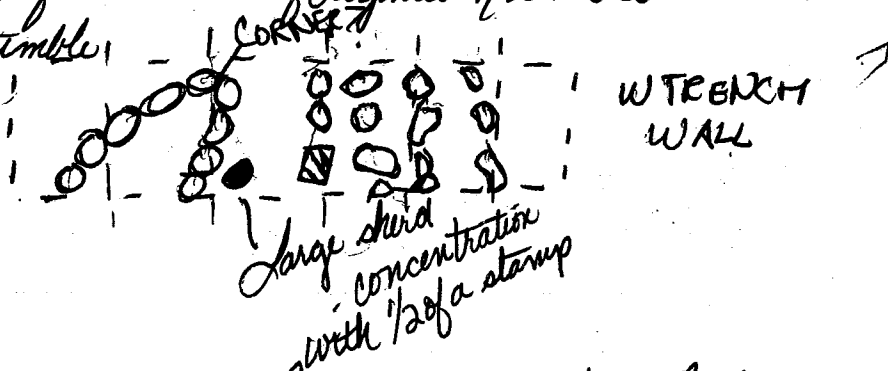 CORNER
W TRENCH
WALL
Large sherd
concentration
with 1/2 of a stamp